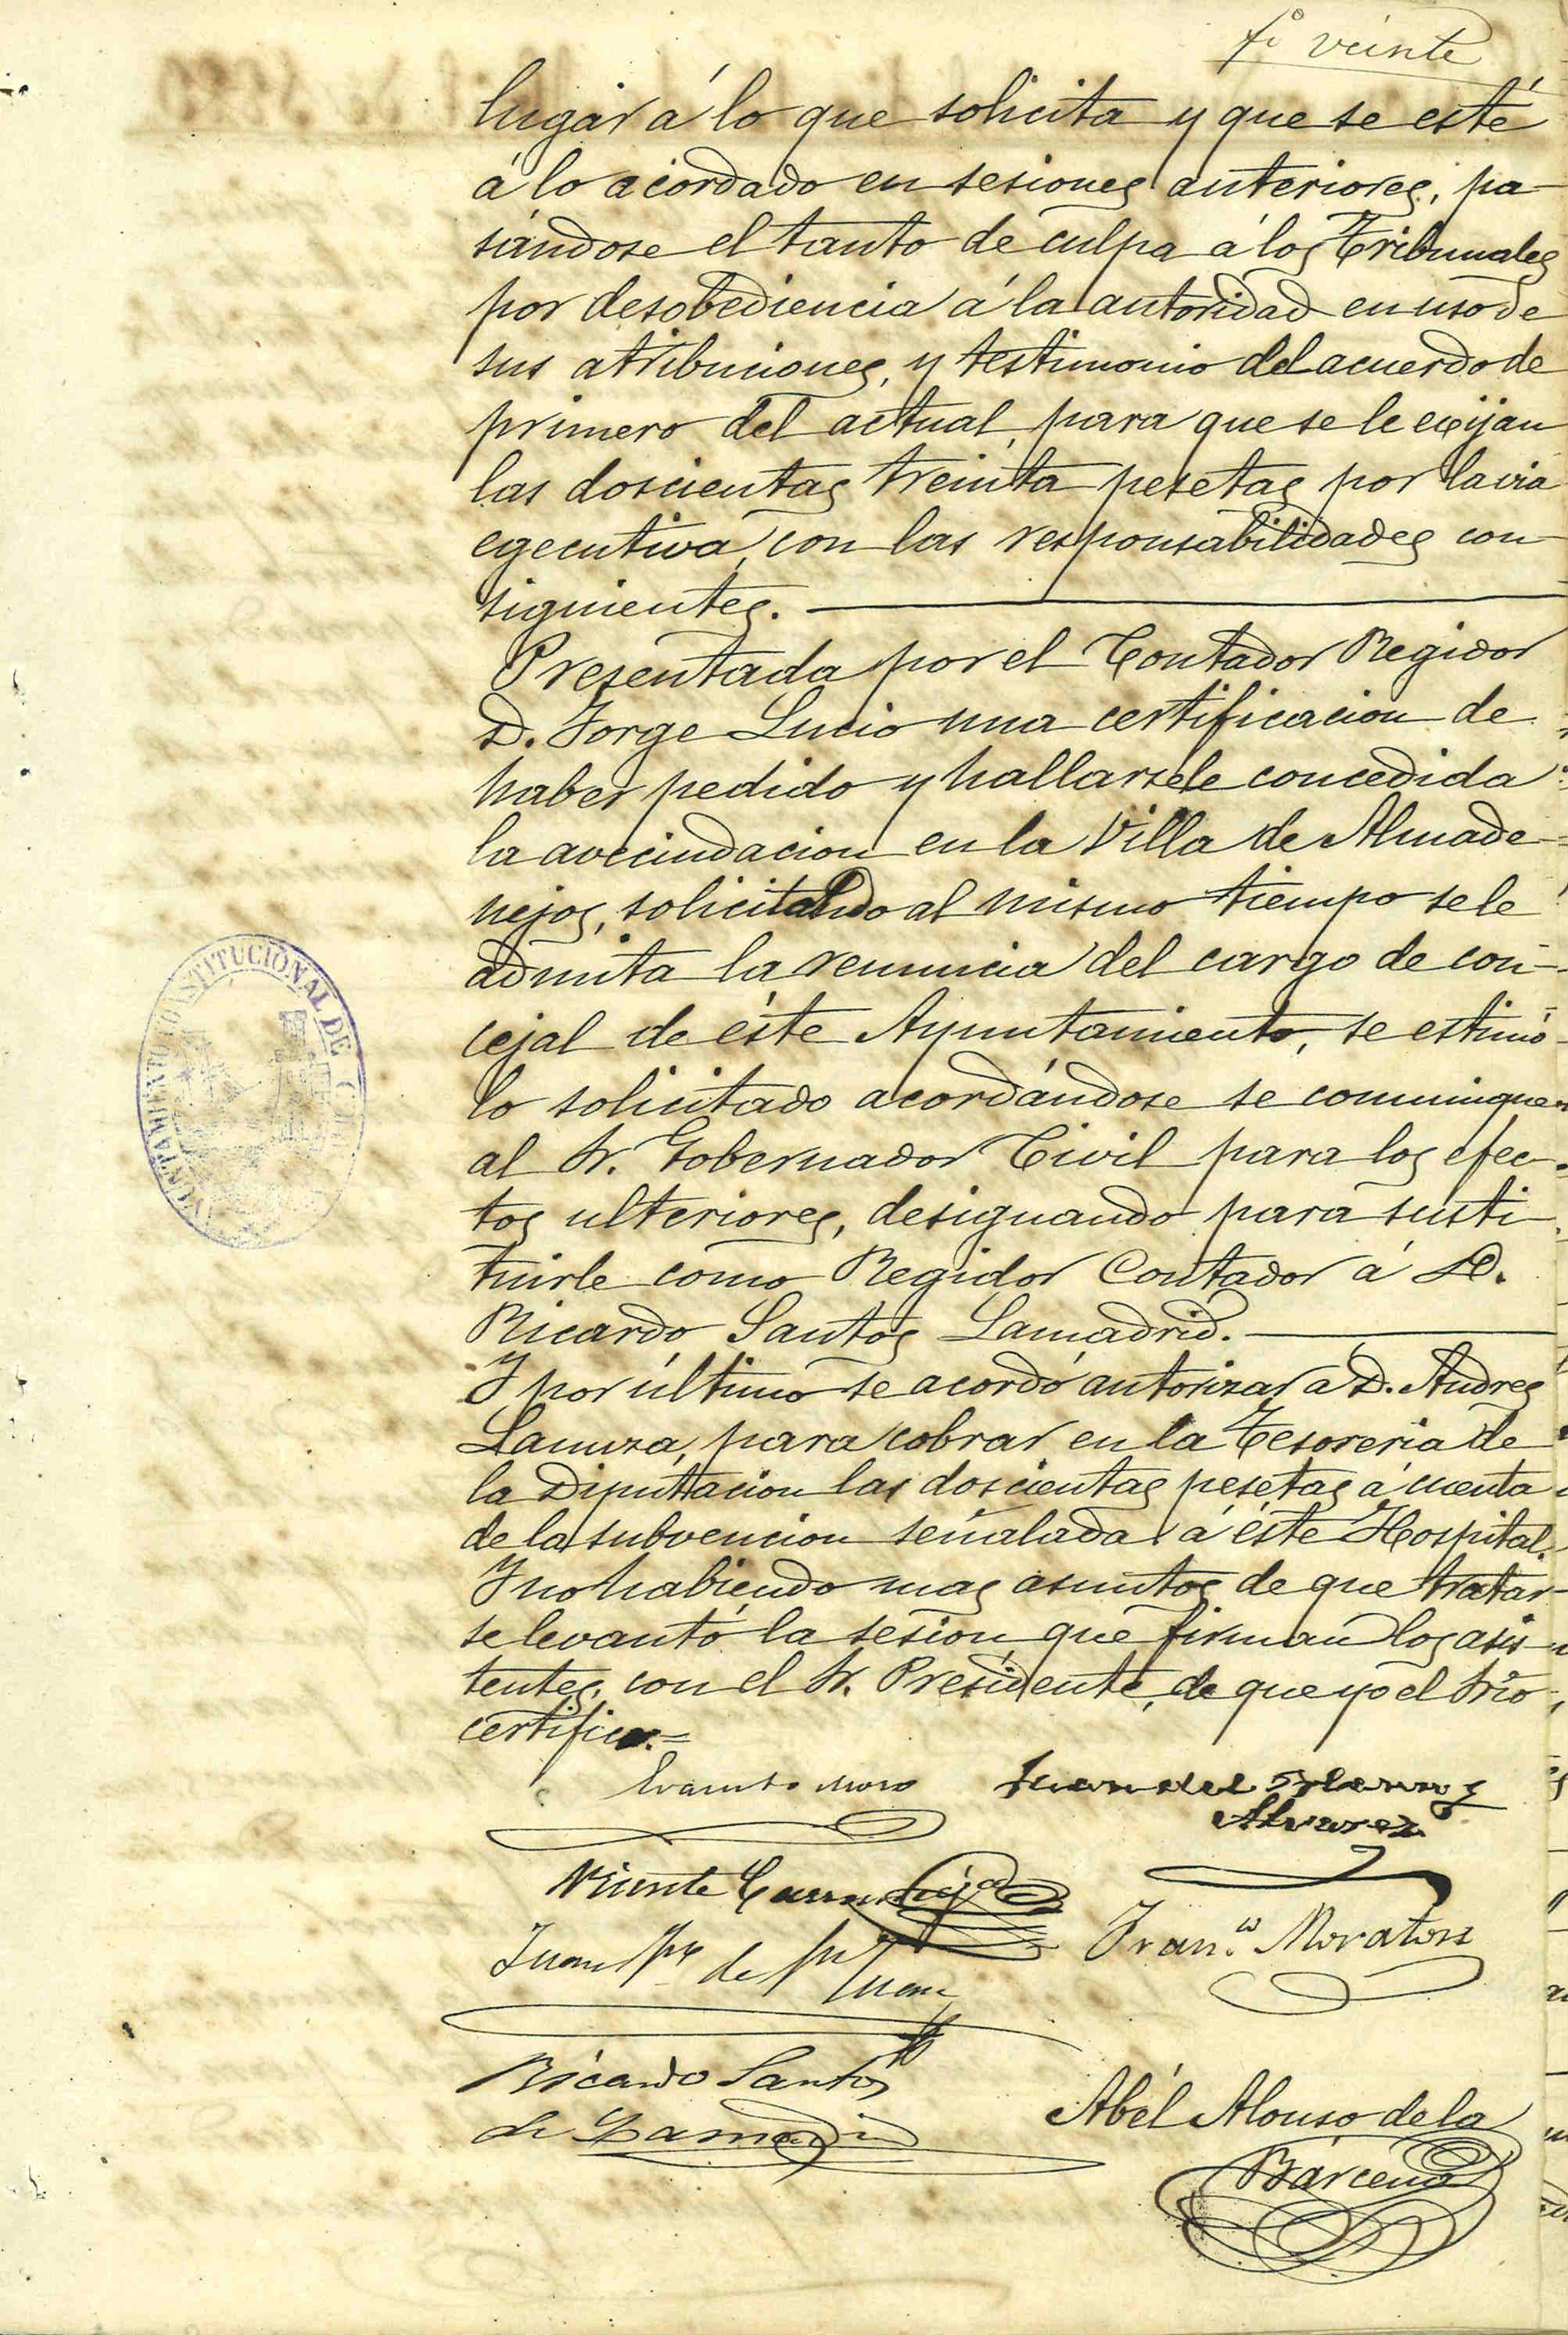 fº veinte
lugar á lo que solicita y que se esté
á lo acordado en sesiones anteriores, pa-
sándose el tanto de culpa á los Tribunales
por desobediencia á la autoridad en uso de
sus atribuciones, y testimonio del acuerdo de
primero del actual, para que se le exijan
las doscientas treinta pesetas por la via
egecutiva, con las responsabilidades con-
siguientes.
Presentada por el Contador Regidor
D. Jorge Lucio una certificacion de
haber pedido y hallarsele concedida
la avecindacion en la Villa de Almade-
nejos, solicitando al mismo tiempo se le
admita la renuncia del cargo de con-
cejal de éste Ayuntamiento, se estimó
lo solicitado acordándose se comunique
al Sr. Gobernador Civil para los efec-
tos ulteriores, designando para susti-
tuirle como Regidor Contador á D.
Ricardo Santos Lamadrid.
Y por último se acordó autorizar á D. Andres
Lanuza, para cobrar en la Tesoreria de
la Diputacion las doscientas pesetas á cuenta
de la subvencion señalada á éste Hospital.
Y no habiendo mas asuntos de que tratar
se levantó la sesion que firman los asis-
tentes, con el Sr. Presidente, de que yo el Srio
certifico.=
Evaristo Moro
Juan del
Alvarez
AYUNTAMIENTO CONSTITUCIONAL DE
Vicente
Franco Moraton
Juan de
Ricardo Santos
de Lamadrid
Abél Alonso de la
Bárcena